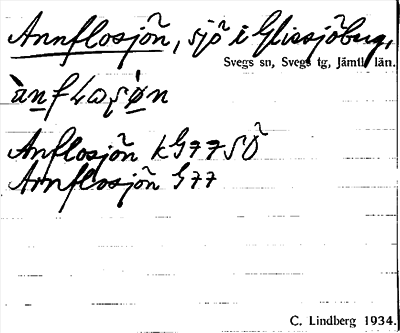 Annflosjön, sjö i Glissjöberg,
Svegs sn, Svegs tg, Jämtl. län.
Anflosjön kG77SÖ
Annflosjön G77
C. Lindberg 1934.